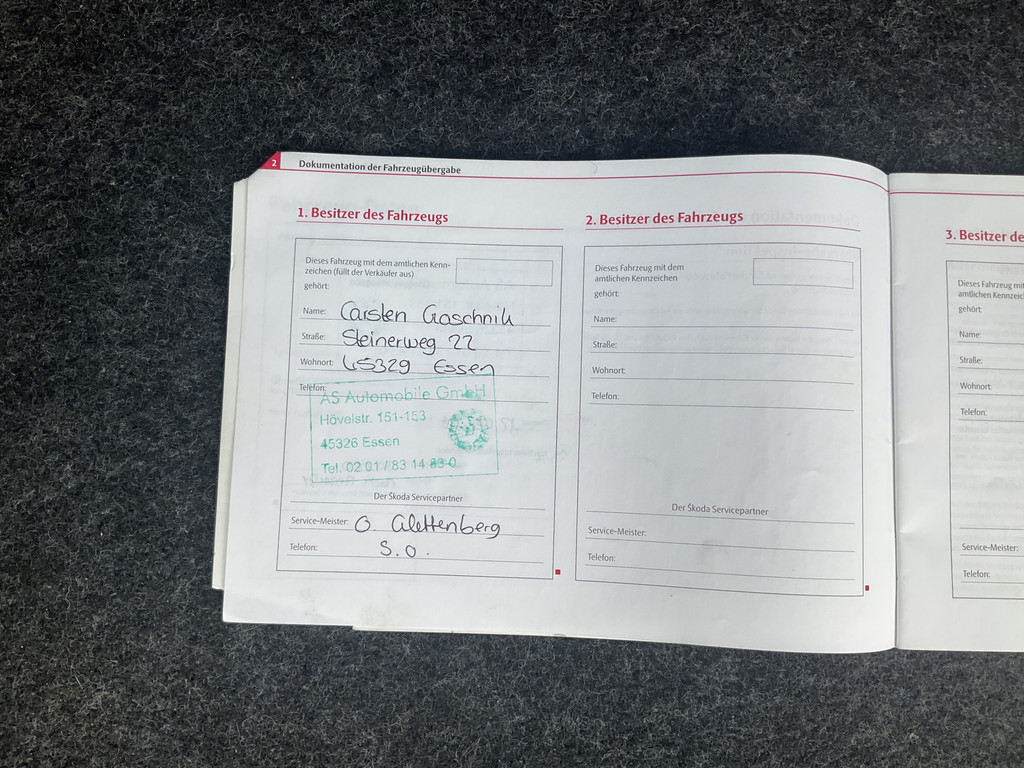 2 Dokumentation der Fahrzeugübergabe
1. Besitzer des Fahrzeugs
Dieses Fahrzeug mit dem amtlichen Kenn-
zeichen (füllt der Verkäufer aus)
gehört:
Name: Carsten Goschnik
Straße: Steinerweg 22
Wohnort: 45329 Essen
Telefon:
AS Automobile GmbH
Hövelstr. 151-153
45326 Essen
Tel. 02 01 / 83 14 83-0
Der Škoda Servicepartner
Service-Meister: O. Alettenberg
Telefon: S.O.
2. Besitzer des Fahrzeugs
Dieses Fahrzeug mit dem
amtlichen Kennzeichen
gehört:
Name:
Straße:
Wohnort:
Telefon:
Der Škoda Servicepartner
Service-Meister:
Telefon:
3. Besitzer de
Dieses Fahrzeug mit
amtlichen Kennzeic
gehört:
Name:
Straße:
Wohnort:
Telefon:
Service-Meister:
Telefon: